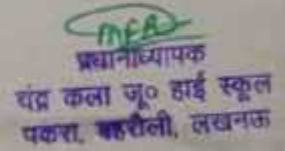 प्रधानाध्यापक
चंद्र कला जू० हाई स्कूल
पकरा, बहरौली, लखनऊ